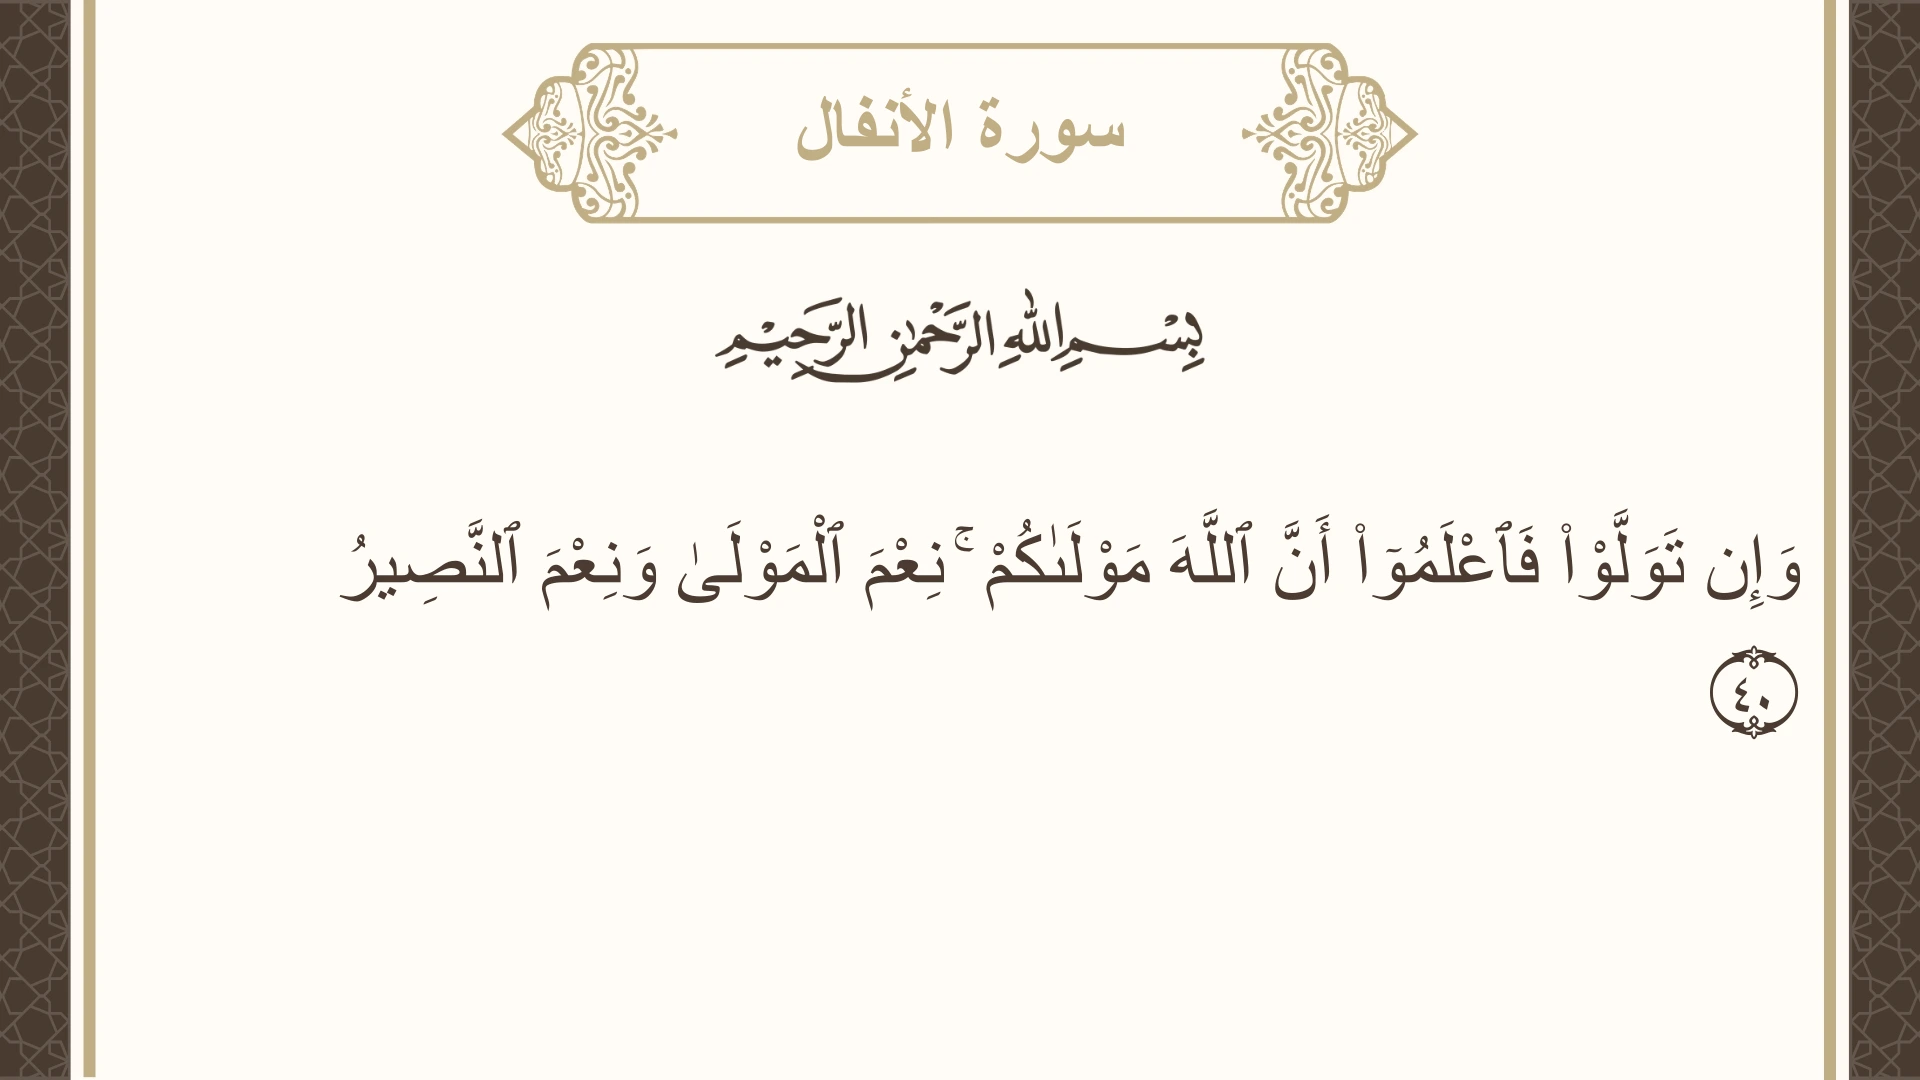 سورة الأنفال
بِسْمِ اللهِ الرَّحْمٰنِ الرَّحِيْمِ
وَإِن تَوَلَّوْا۟ فَٱعْلَمُوٓا۟ أَنَّ ٱللَّهَ مَوْلَىٰكُمْ ۚ نِعْمَ ٱلْمَوْلَىٰ وَنِعْمَ ٱلنَّصِيرُ
٤٠